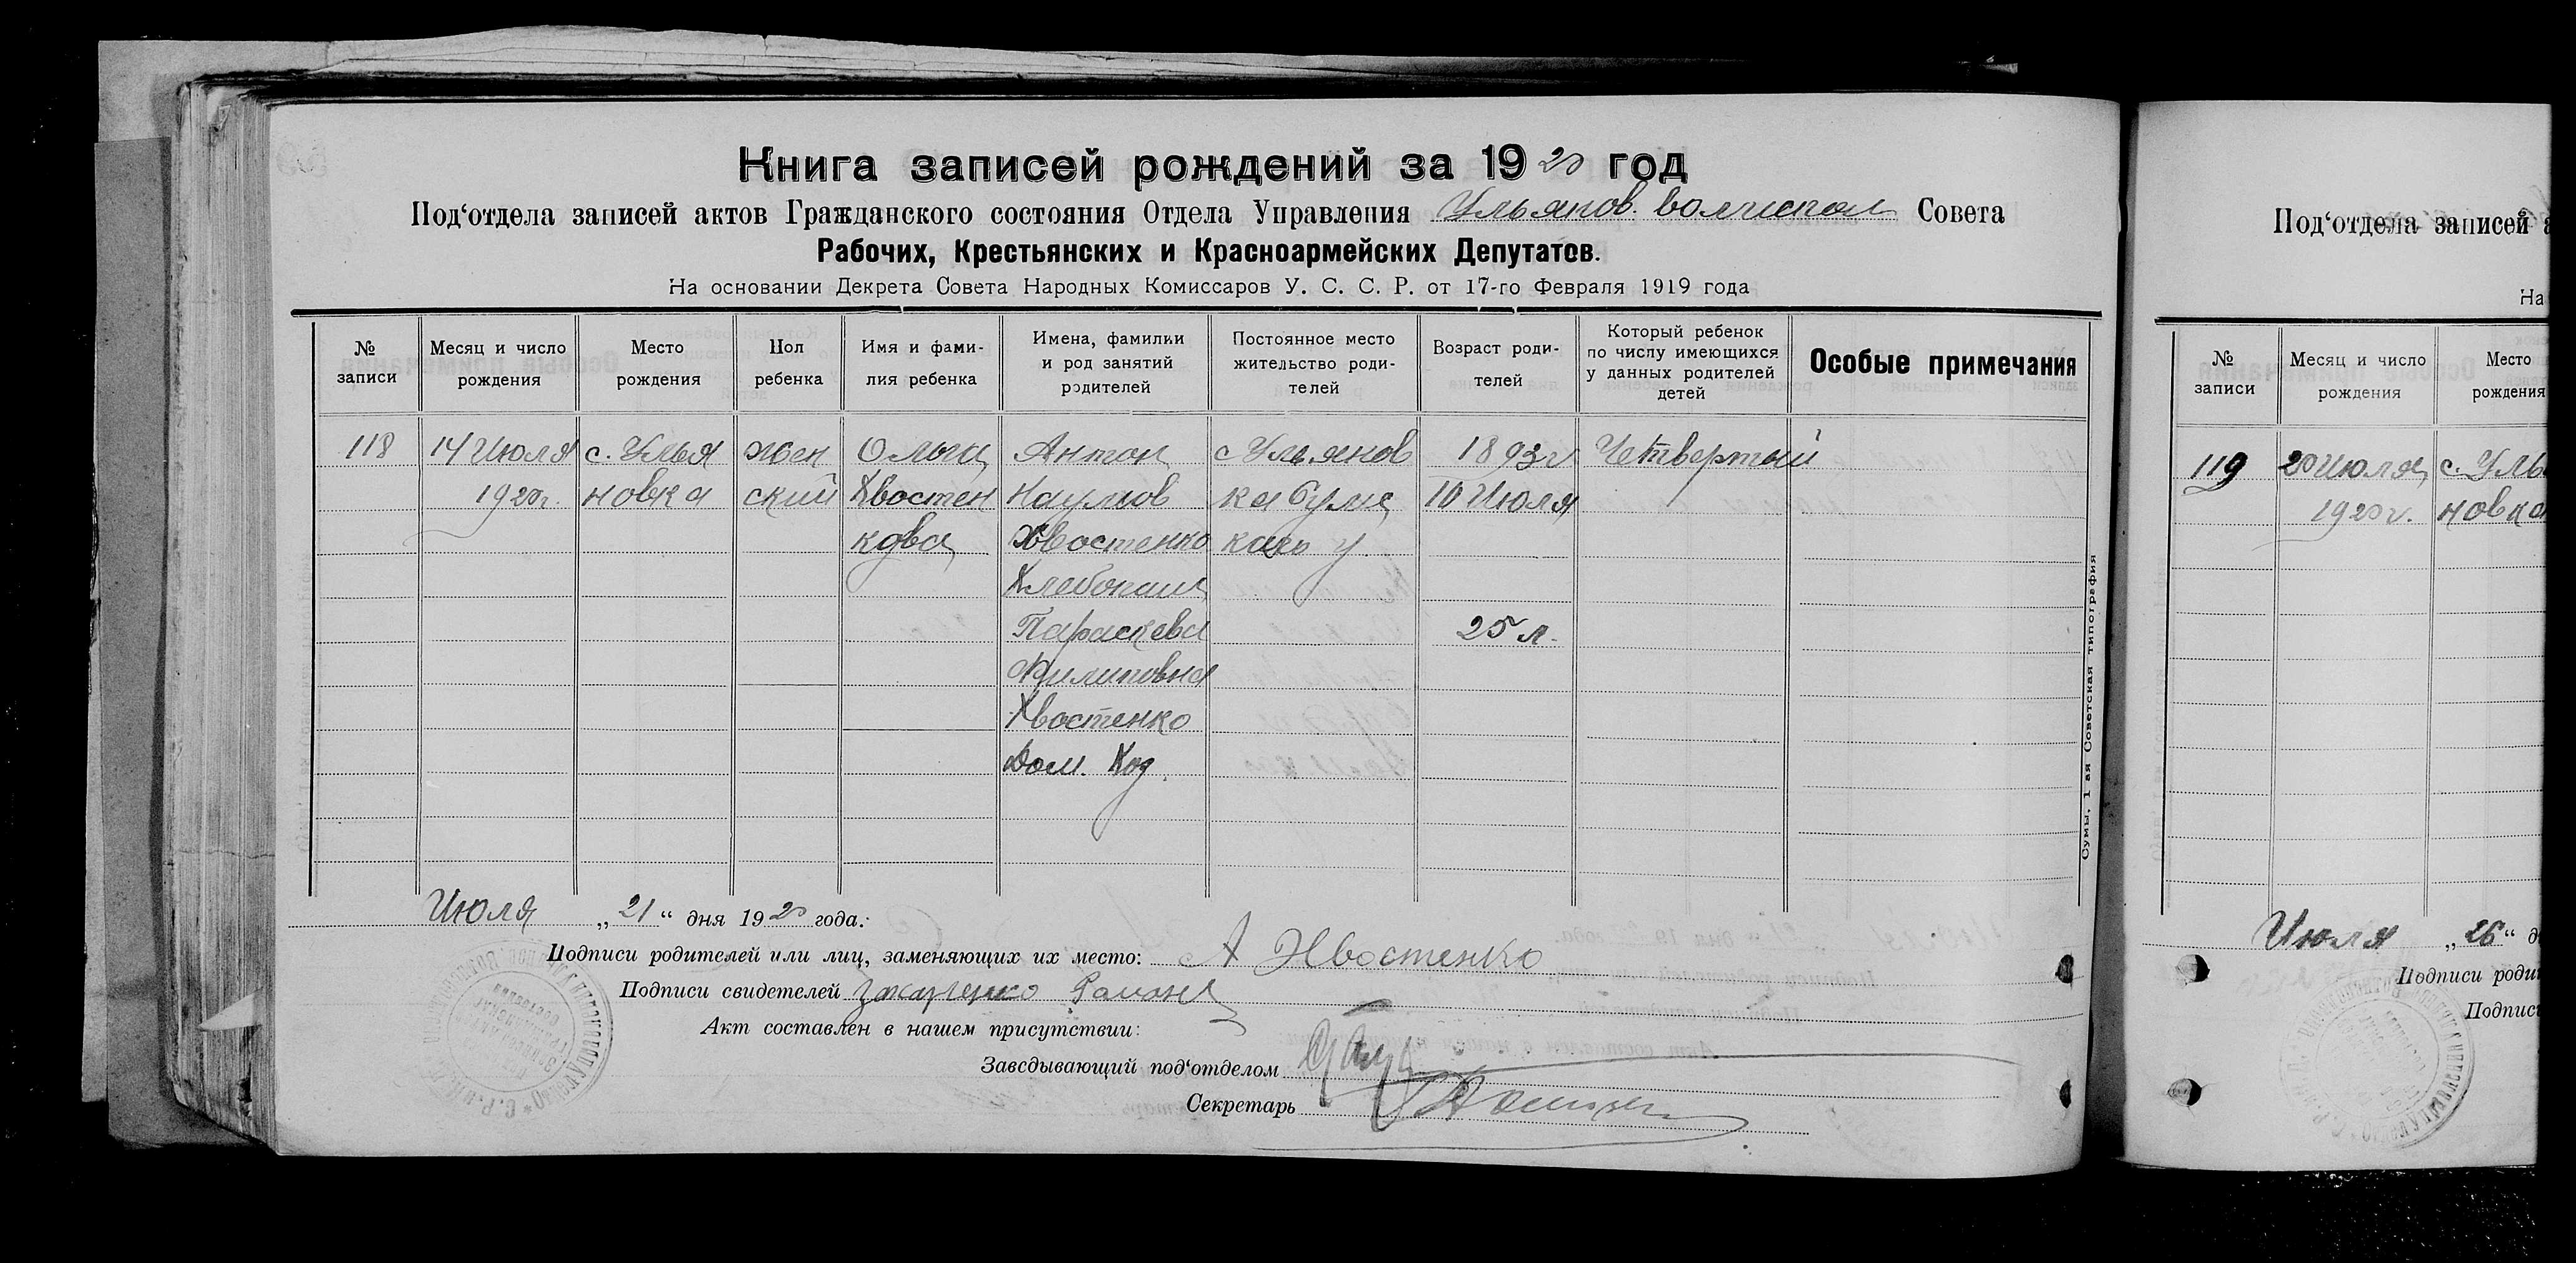 Книга записей рождений за 1920 год
Под‘отдела записей актов Гражданского состояния Отдела Управления Ульянов. волисполк Совета
Рабочих, Крестьянских и Красноармейских Депутатов.
На основании Декрета Совета Народных Комиссаров У. С. С. Р. от 17-го Февраля 1919 года
№ записи
Месяц и число рождения
Место рождения
Пол ребенка
Имя и фами-
лия ребенка
Имена, фамилии
и род занятий
родителей
Постоянное место
жительство роди-
телей
Возраст роди-
телей
Который ребенок
по числу имеющихся
у данных родителей
детей
Особые примечания
118
14 Июля
1920г.
с. Улья
новка
жен
ский
Ольга
Хвостен
кова
Антон
Наумов
Хвостенко
Хлебопаш
Параскева
Филиповна
Хвостенко
Дом. Хоз.
с Ульянов
ка Сумс
каго у
1893г
10 Июля
25 л.
Четвертый
Июля „21“ дня 1920 года.:
Подписи родителей или лиц, заменяющих их место: А Хвостенко
Подписи свидетелей Захарченко Роман
Акт составлен в нашем присутствии:
Заведывающий под‘отделом
Секретарь
Сумы, 1 ая Советская типография
Под‘отдела записей а
На
№ записи
Месяц и число рождения
Место рождения
119
20 Июля
1920г.
с. Улья
новка
Июля „26“ д
Подписи роди
Подпис